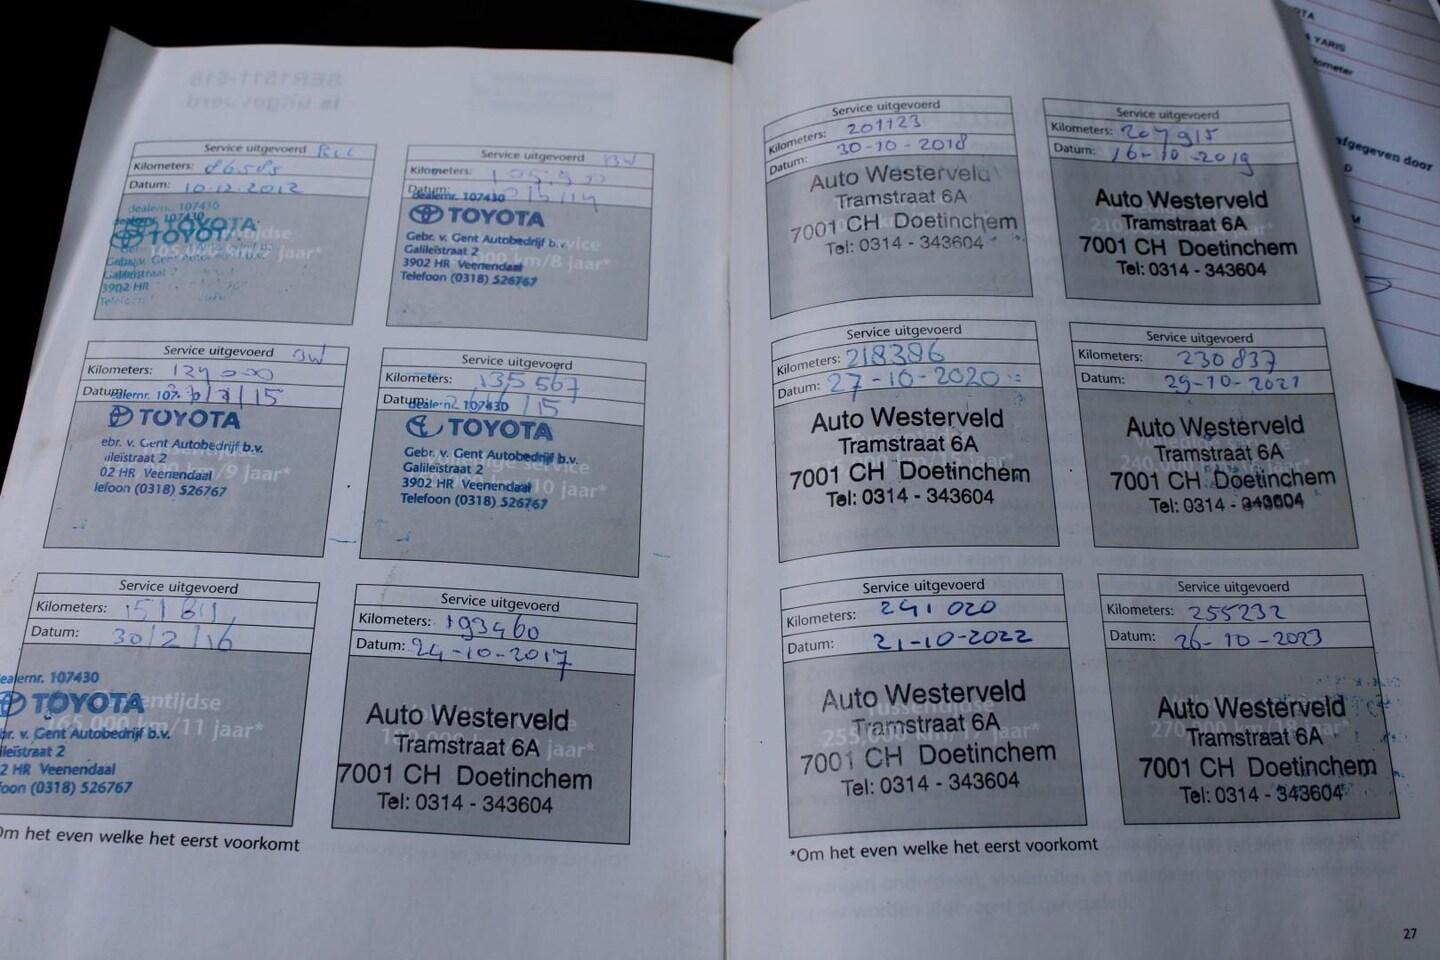 Service uitgevoerd
Kilometers: 86585
Datum: 10-12-2012
dealernr. 107430
TOYOTA
3902 HR
Service uitgevoerd BW
Kilometers:
Datum:
dealernr. 107430
TOYOTA
Gebr. v. Gent Autobedrijf b.v.
Galileïstraat 2
3902 HR Veenendaal
Telefoon (0318) 526767
km/8 jaar*
Service uitgevoerd BW
Kilometers: 129000
Datum:
TOYOTA
ebr. v. Gent Autobedrijf b.v.
lileïstraat 2
02 HR Veenendaal
lefoon (0318) 526767
km/9 jaar*
Service uitgevoerd
Kilometers: 135567
Datum:
dealernr. 107430
TOYOTA
Gebr. v. Gent Autobedrijf b.v.
Galileïstraat 2
3902 HR Veenendaal
Telefoon (0318) 526767
10 jaar*
Service uitgevoerd
Kilometers: 151811
Datum: 30/2/16
ealernr. 107430
TOYOTA
br. v. Gent Autobedrijf b.v.
leïstraat 2
2 HR Veenendaal
foon (0318) 526767
entijdse
165,000 km/11 jaar*
Service uitgevoerd
Kilometers: 193460
Datum: 24-10-2017
Auto Westerveld
Tramstraat 6A
7001 CH Doetinchem
Tel: 0314 - 343604
*Om het even welke het eerst voorkomt
Service uitgevoerd
Kilometers: 201123
Datum: 30-10-2018
Auto Westerveld
Tramstraat 6A
7001 CH Doetinchem
Tel: 0314 - 343604
Service uitgevoerd
Kilometers: 207915
Datum: 16-10-2019
Auto Westerveld
Tramstraat 6A
7001 CH Doetinchem
Tel: 0314 - 343604
Service uitgevoerd
Kilometers: 218386
Datum: 27-10-2020
Auto Westerveld
Tramstraat 6A
7001 CH Doetinchem
Tel: 0314 - 343604
Service uitgevoerd
Kilometers: 230837
Datum: 29-10-2021
Auto Westerveld
Tramstraat 6A
7001 CH Doetinchem
Tel: 0314 - 343604
Service uitgevoerd
Kilometers: 241020
Datum: 21-10-2022
Auto Westerveld
Tramstraat 6A
7001 CH Doetinchem
Tel: 0314 - 343604
Tussentijdse
255,000 km/17 jaar*
Service uitgevoerd
Kilometers: 255232
Datum: 26-10-2023
Auto Westerveld
Tramstraat 6A
7001 CH Doetinchem
Tel: 0314 - 343604
270,000 km/18 jaar*
*Om het even welke het eerst voorkomt
27
YARIS
afgegeven door